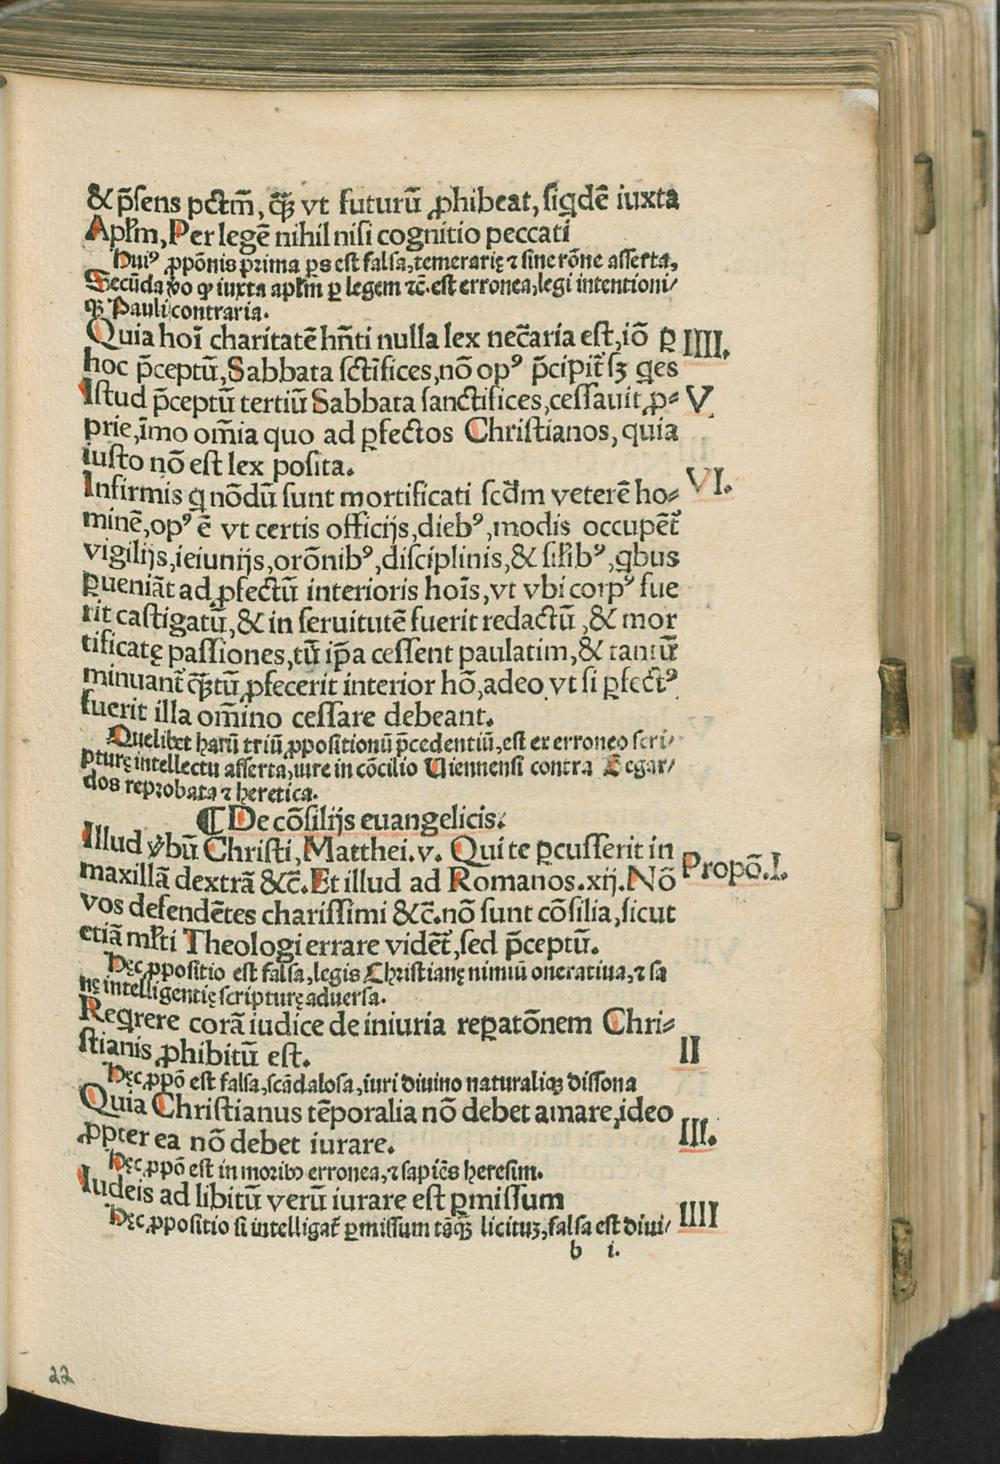 & p̄sens pctm̄, q̄ꝫ vt futurū ꝓhibeat, siqdē iuxta
Apl̄m, Per legē nihil nisi cognitio peccati
Huiꝰ ꝓpōnis prima ꝑs est falsa, temerarię ⁊ sine rōne asserta,
Secūda ꝟo ꝙ iuxta apl̄m ꝑ legem ⁊c̄. est erronea, legi intentioni/
qꝫ Pauli contraria.
Quia hoī charitatē hn̄ti nulla lex nec̄aria est, iō ꝑ IIII.
hoc p̄ceptū, Sabbata sctīfices, nō opꝰ p̄cipit̄ sꝫ qes
Istud p̄ceptū tertiū Sabbata sanctifices, cessauit ꝓ⸗ V
prie, īmo om̄ia quo ad ꝑfectos Christianos, quia
iusto nō est lex posita.
Infirmis q nōdū sunt mortificati scd̄m veterē ho⸗ VI.
minē, opꝰ ē vt certis officijs, diebꝰ, modis occupēt̄
vigilijs, ieiunijs, orōnibꝰ, disciplinis, & sil̄ibꝰ, qbus
ꝑueniāt ad ꝓfectū interioris hoīs, vt vbi corpꝰ fue
rit castigatū, & in seruitutē fuerit redactū, & mor
tificatę passiones, tū ip̄a cessent paulatim, & tantū
minuant̄ q̄ꝫtū ꝓfecerit interior hō, adeo vt si ꝑfectꝰ
fuerit illa om̄ino cessare debeant.
Quelibet harū triū ꝓpositionū p̄cedentiū, est ex erroneo scri/
pturę intellectu asserta, iure in cōcilio Uiennensi contra Begar/
dos reprobata ⁊ heretica.
¶ De cōsilijs euangelicis.
Illud ꝟbū Christi, Matthei. v. Qui te ꝑcusserit in Propō. I.
maxillā dextrā &c̄. Et illud ad Romanos. xij. Nō
vos defendētes charissimi &c̄. nō sunt cōsilia, sicut
etiā ml̄ti Theologi errare vidēt̄, sed p̄ceptū.
Hęc ꝓpositio est falsa, legis Christianę nimiū oneratiua, ⁊ sa
nę intelligentię scripturę aduersa.
Reqrere corā iudice de iniuria reꝑatōnem Chri⸗ II
stianis ꝓhibitū est.
Hęc ꝓpō est falsa, scādalosa, iuri diuino naturaliqꝫ dissona
Quia Christianus tēporalia nō debet amare, ideo III.
ꝓpter ea nō debet iurare.
Hęc ꝓpō est in moribꝰ erronea, ⁊ sapiēs heresim.
Iudeis ad libitū verū iurare est ꝑmissum IIII
Hęc ꝓpositio si intelligat̄ ꝑmissum tāqꝫ licituꝫ, falsa est diui/
b i.
22